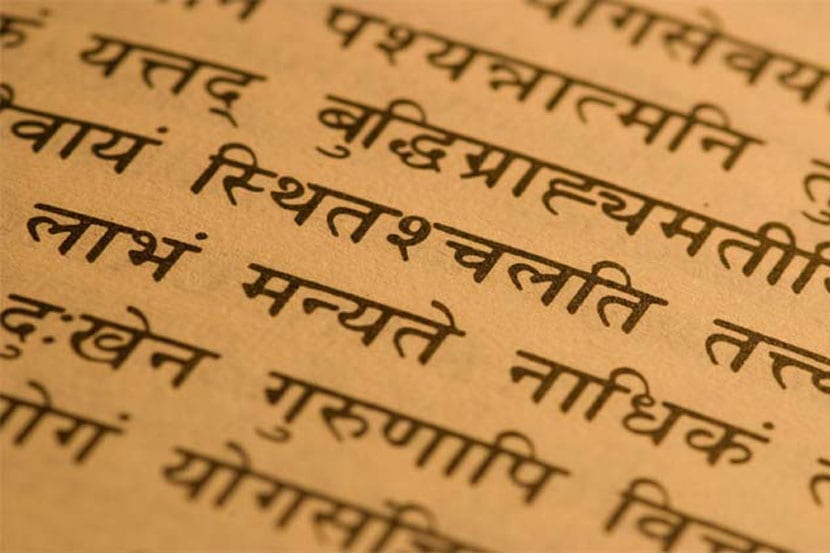 योगसेवया
पश्यन्नात्मनि तु
यत्तद् बुद्धिग्राह्यमती
वायं स्थितश्चलति तत्त्व
लाभं मन्यते नाधिकं
दुःखेन गुरुणापि विच
योगं योगसं